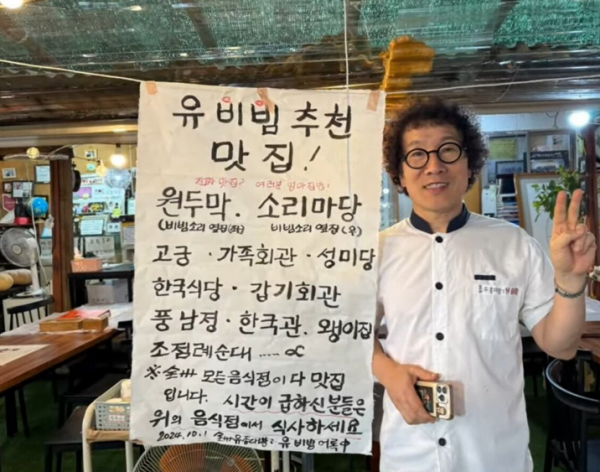 유비빔 추천
맛집!
진짜 맛집?
원두막. 소리마당
(비빔소리 옆집(좌) 비빔소리 옆집(우)
고궁 · 가족회관 · 성미당
한국식당 · 갑기회관
풍남정 · 한국관. 왱이집
조점례순대 ..... ∝
※ 슬 모든음식점이 다 맛집
입니다. 시간이 급하신분들은
위의 음식점에서 식사하세요
2024.10.1 유비빔 어록中